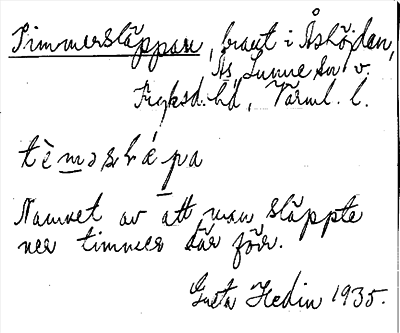 Timmersläppan, brant i Åshöjden,
Ås, Sunne sn v.
Fryksd. hd, Värml. l.
Namnet av att man släppte
ner timmer där för.
Gusta Hedin 1935.